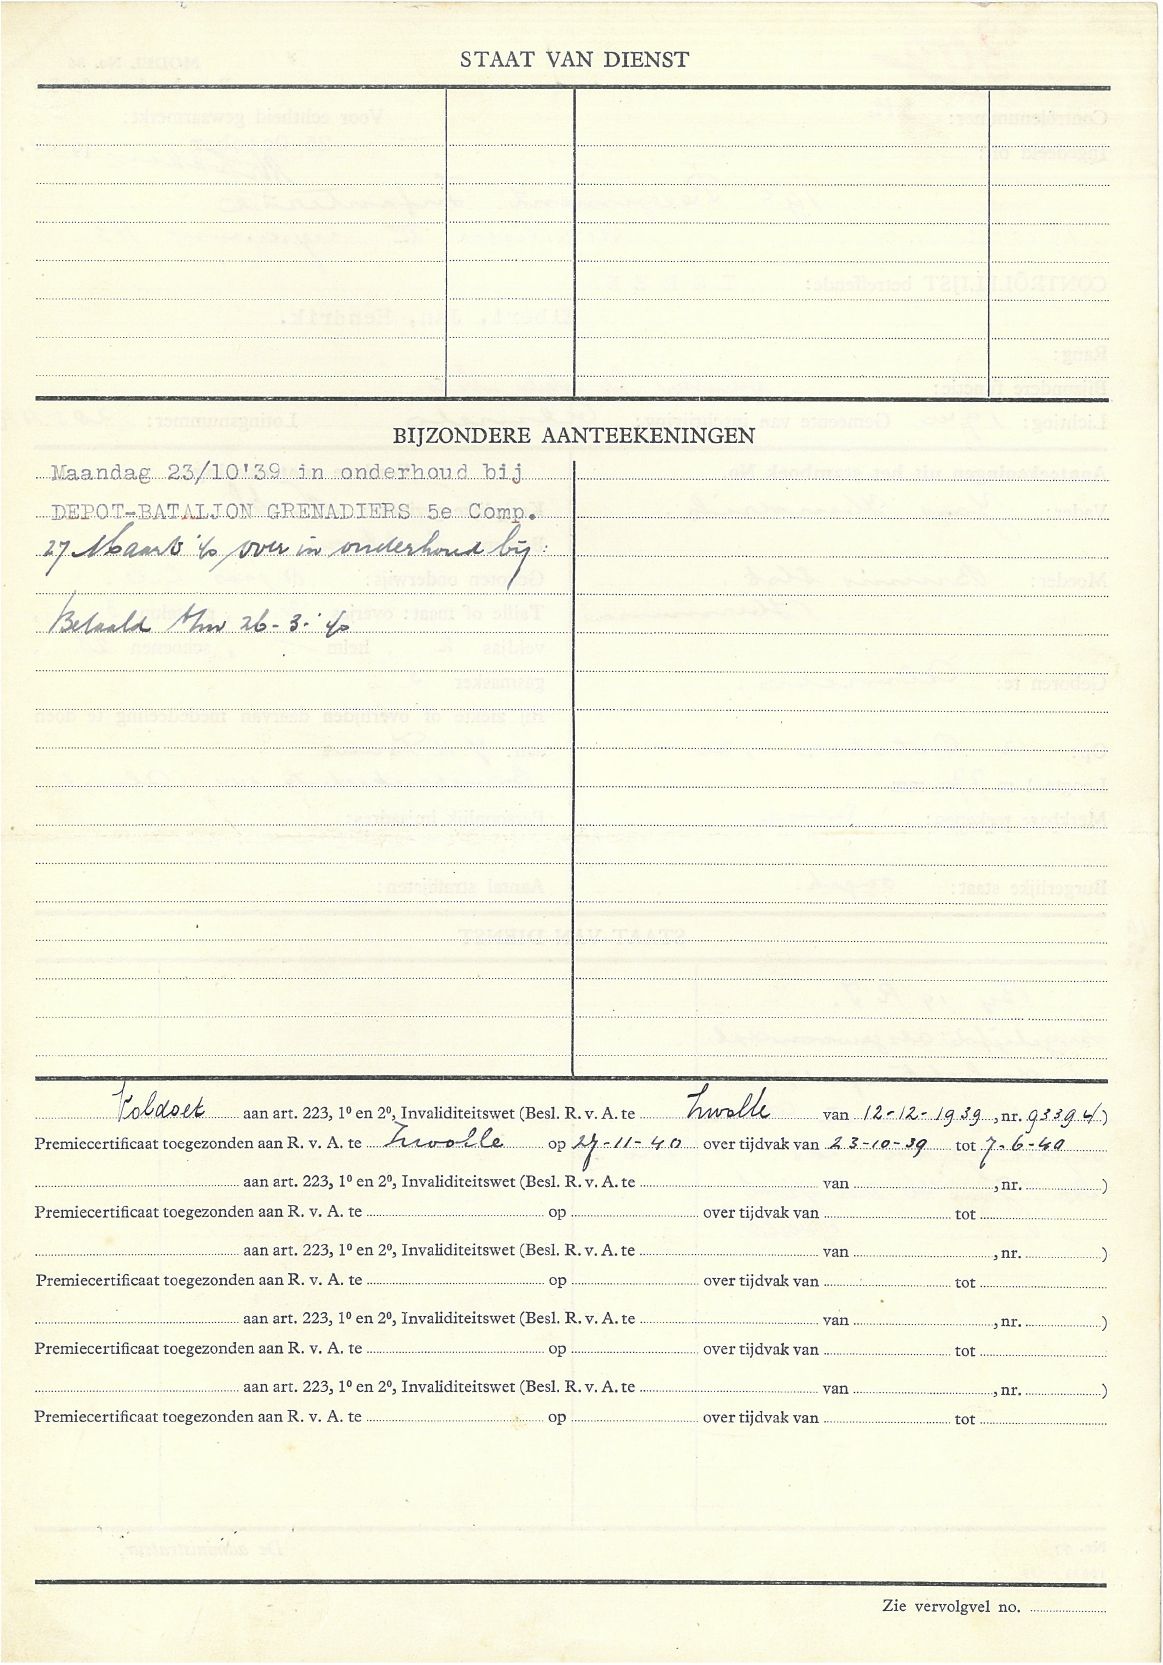 STAAT VAN DIENST
BIJZONDERE AANTEEKENINGEN
Maandag 23/10'39 in onderhoud bij
DEPOT-BATALJON GRENADIERS 5e Comp.
27 Maart '40 over in onderhoud bij:
Betaald t/m 26-3-'40
Voldoet aan art. 223, 1º en 2º, Invaliditeitswet (Besl. R. v. A. te Zwolle van 12-12-1939, nr. 93394)
Premiecertificaat toegezonden aan R. v. A. te Zwolle op 27-11-40 over tijdvak van 23-10-39 tot 7-6-40
aan art. 223, 1º en 2º, Invaliditeitswet (Besl. R. v. A. te van , nr. )
Premiecertificaat toegezonden aan R. v. A. te op over tijdvak van tot
aan art. 223, 1º en 2º, Invaliditeitswet (Besl. R. v. A. te van , nr. )
Premiecertificaat toegezonden aan R. v. A. te op over tijdvak van tot
aan art. 223, 1º en 2º, Invaliditeitswet (Besl. R. v. A. te van , nr. )
Premiecertificaat toegezonden aan R. v. A. te op over tijdvak van tot
aan art. 223, 1º en 2º, Invaliditeitswet (Besl. R. v. A. te van , nr. )
Premiecertificaat toegezonden aan R. v. A. te op over tijdvak van tot
Zie vervolgvel no.